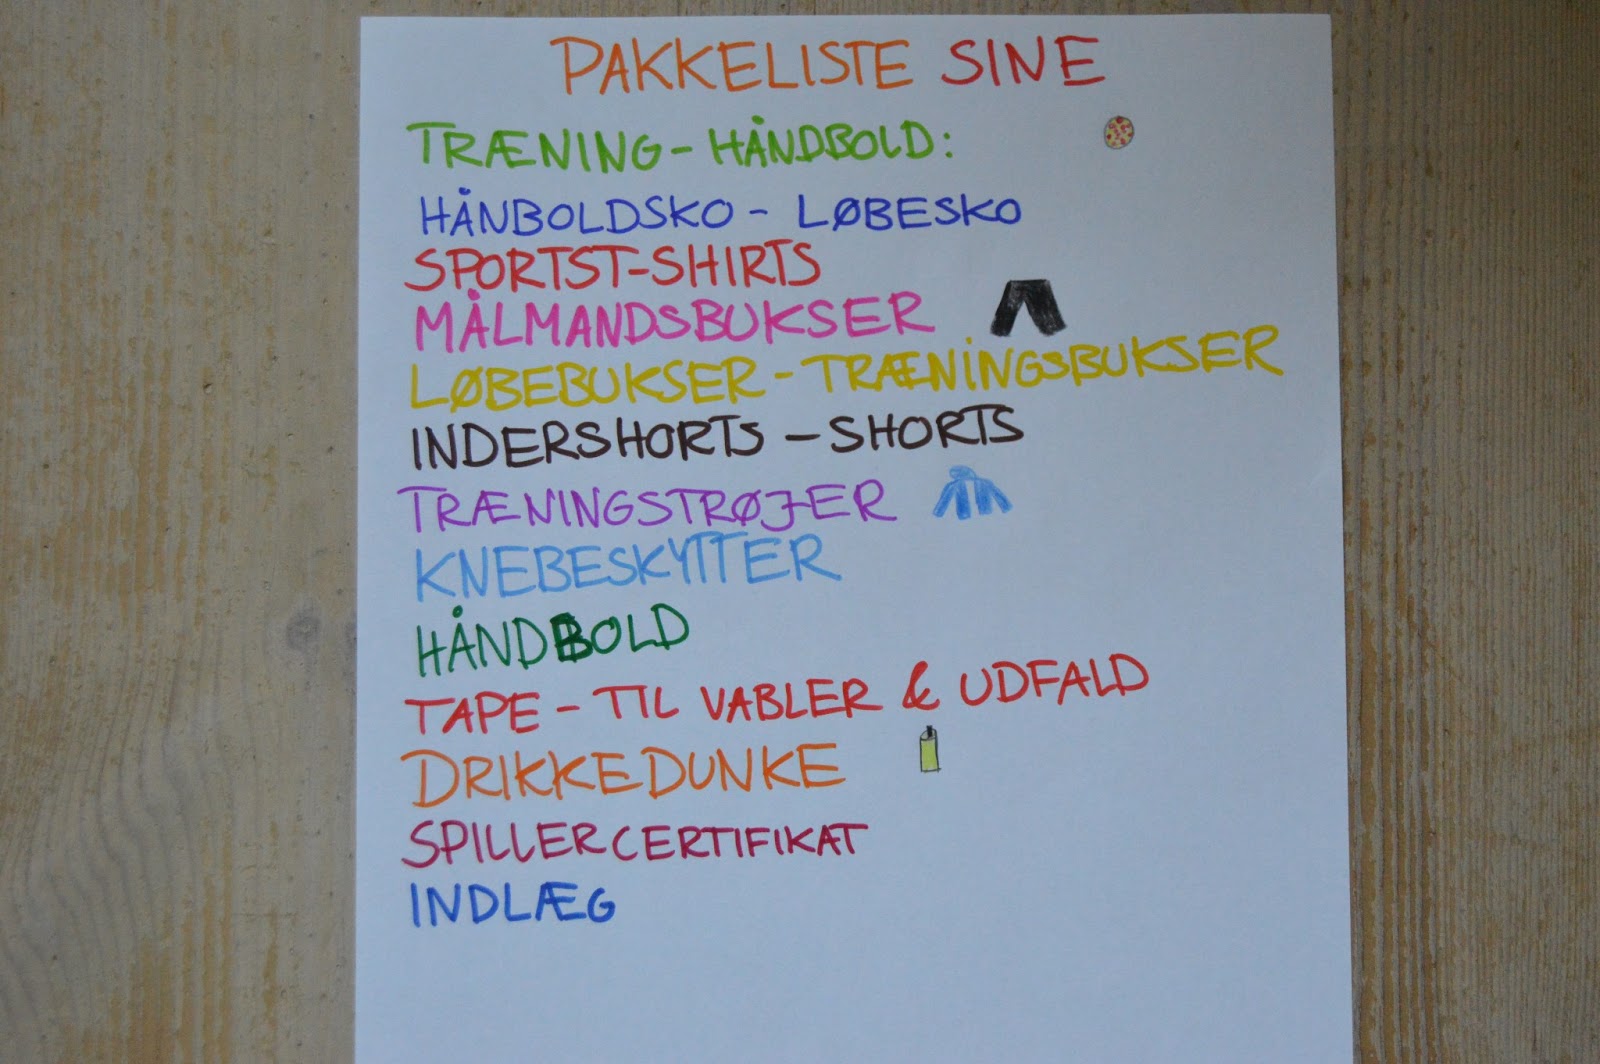 PAKKELISTE SINE
TRÆNING - HÅNDBOLD:
HÅNBOLDSKO - LØBESKO
SPORTST-SHIRTS
MÅLMANDSBUKSER
LØBEBUKSER - TRÆNINGSBUKSER
INDERSHORTS - SHORTS
TRÆNINGSTRØJER
KNEBESKYTTER
HÅNDBOLD
TAPE - TIL VABLER & UDFALD
DRIKKEDUNKE
SPILLERCERTIFIKAT
INDLÆG